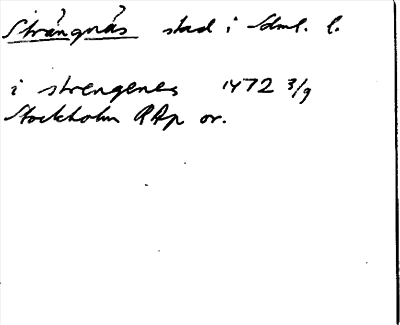 Strängnäs stad i Sdml. l.
i strengenes 1472 3/9
Stockholm RAp or.